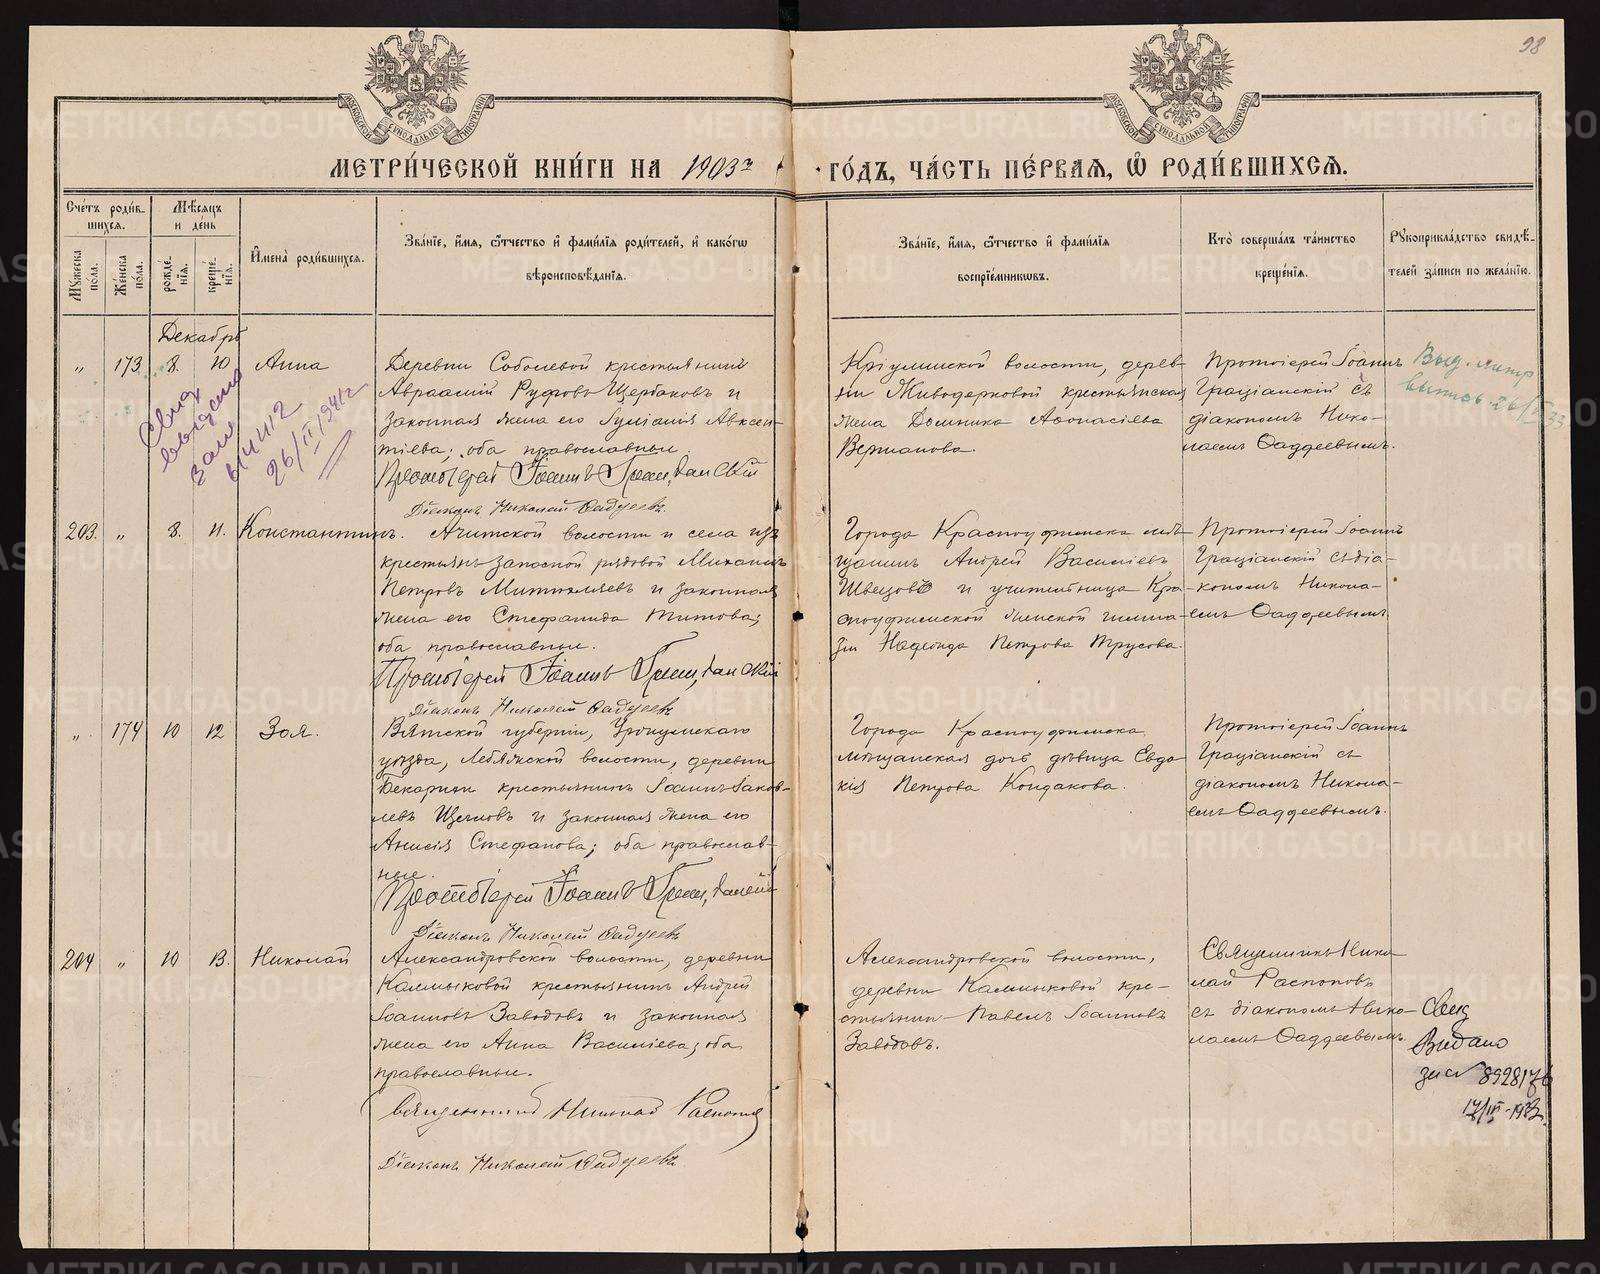 98
МЕТРИ́ЧЕСКОЙ КНИ́ГИ НА 1903й ГО́ДЪ, ЧА́СТЬ ПЕ́РВАЯ, Ѽ РОДИ́ВШИХСЯ.
Сче́тъ роди́в-
шихся.
Мѣ́сяцъ
и де́нь
Му́жеска
по́ла.
Же́нска
по́ла.
рожде́-
нїя.
креще́-
нїя.
И҆мена̀ роди́вшихся.
Зва́нїе, и҆́мя, ѻ҆́тчество и҆ фами́лїя роди́телей, и҆ како́гѡ
вѣроисповѣ́данїя.
Зва́нїе, и҆́мя, ѻ҆́тчество и҆ фами́лїя
воспрїе́мниковъ.
Кто̀ соверша́лъ та́инство
креще́нїя.
Рꙋкоприкла́дство свидѣ́-
телей за́писи по жела́нїю.
Декабрь
" 173 8. 10 Анна
Деревни Соболевой крестьянинъ
Авраамій Руфовъ Щербаковъ и
законная жена его Іуліанія Авксен-
тіева; оба православные.
Протоіерей Іоаннъ Граціанскій
Діаконъ Николай Фаддеевъ.
Кріулинской волости, дерев-
ни Живодерковой крестьянская
жена Домника Аѳонасіева
Верманова.
Протоіерей Іоаннъ
Граціанскій съ
діакономъ Нико-
лаемъ Ѳаддеевымъ.
Выд. метр
выпись 26/
26/II/1942
203. " 8. 11. Константинъ.
Ачитской волости и села изъ
крестьянъ запасной рядовой Михаилъ
Петровъ Митюхляевъ и законная
жена его Стефанида Титова;
оба православные.
Протоіерей Іоаннъ Граціанскій
Діаконъ Николай Фаддеевъ
Города Красноуфимска мѣ-
щанинъ Андрей Василіевъ
Швецовъ и учительница Кра-
сноуфимской женской гимна-
зіи Надежда Петрова Трусова.
Протоіерей Іоаннъ
Граціанскій съ діа-
кономъ Никола-
емъ Ѳаддеевымъ.
" 174 10 12 Зоя.
Вятской губерніи, Уржумскаго
уѣзда, Лебяжской волости, деревни
Бекарни крестьянинъ Іоаннъ Іаков-
левъ Щегловъ и законная жена его
Анисія Стефанова; оба православ-
ные.
Протоіерей Іоаннъ Граціанскій
Діаконъ Николай Фаддеевъ
Города Красноуфимска
мѣщанская дочь дѣвица Евдо-
кія Петрова Кондакова.
Протоіерей Іоаннъ
Граціанскій съ
діакономъ Никола-
емъ Ѳаддеевымъ.
204 " 10 13. Николай
Александровской волости, деревни
Калмыковой крестьянинъ Андрей
Іоанновъ Заводовъ и законная
жена его Анна Василіева; оба
православные.
Священникъ Николай Распоповъ
Діаконъ Николай Фаддеевъ.
Александровской волости,
деревни Калмыковой кре-
стьянинъ Павелъ Іоанновъ
Заводовъ.
Священникъ Нико-
лай Распоповъ
съ діакономъ Нико-
лаемъ Ѳаддеевымъ.
Выдано